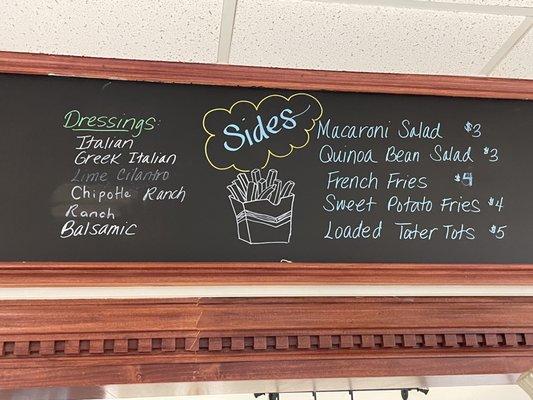 Dressings:
Italian
Greek Italian
Lime Cilantro
Chipotle Ranch
Ranch
Balsamic
Sides
Macaroni Salad $3
Quinoa Bean Salad $3
French Fries $4
Sweet Potato Fries $4
Loaded Tater Tots $5